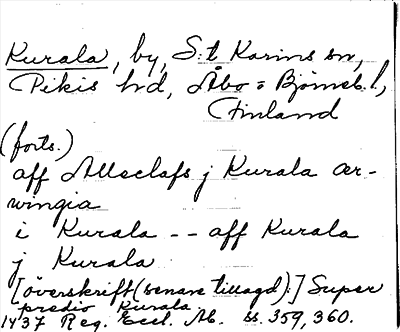 Kurala, by, S:t Karins sn,
Pikis hd, Åbo = Björneb. l,
Finland
(forts.)
aff Alleclafs j Kurala ær-
wingia
i Kurala -- aff Kurala
j Kurala
[överskrift (senare tillagd):] Super
predio Kurala
1437 Reg. Eccl. Ab. ss. 359, 360.